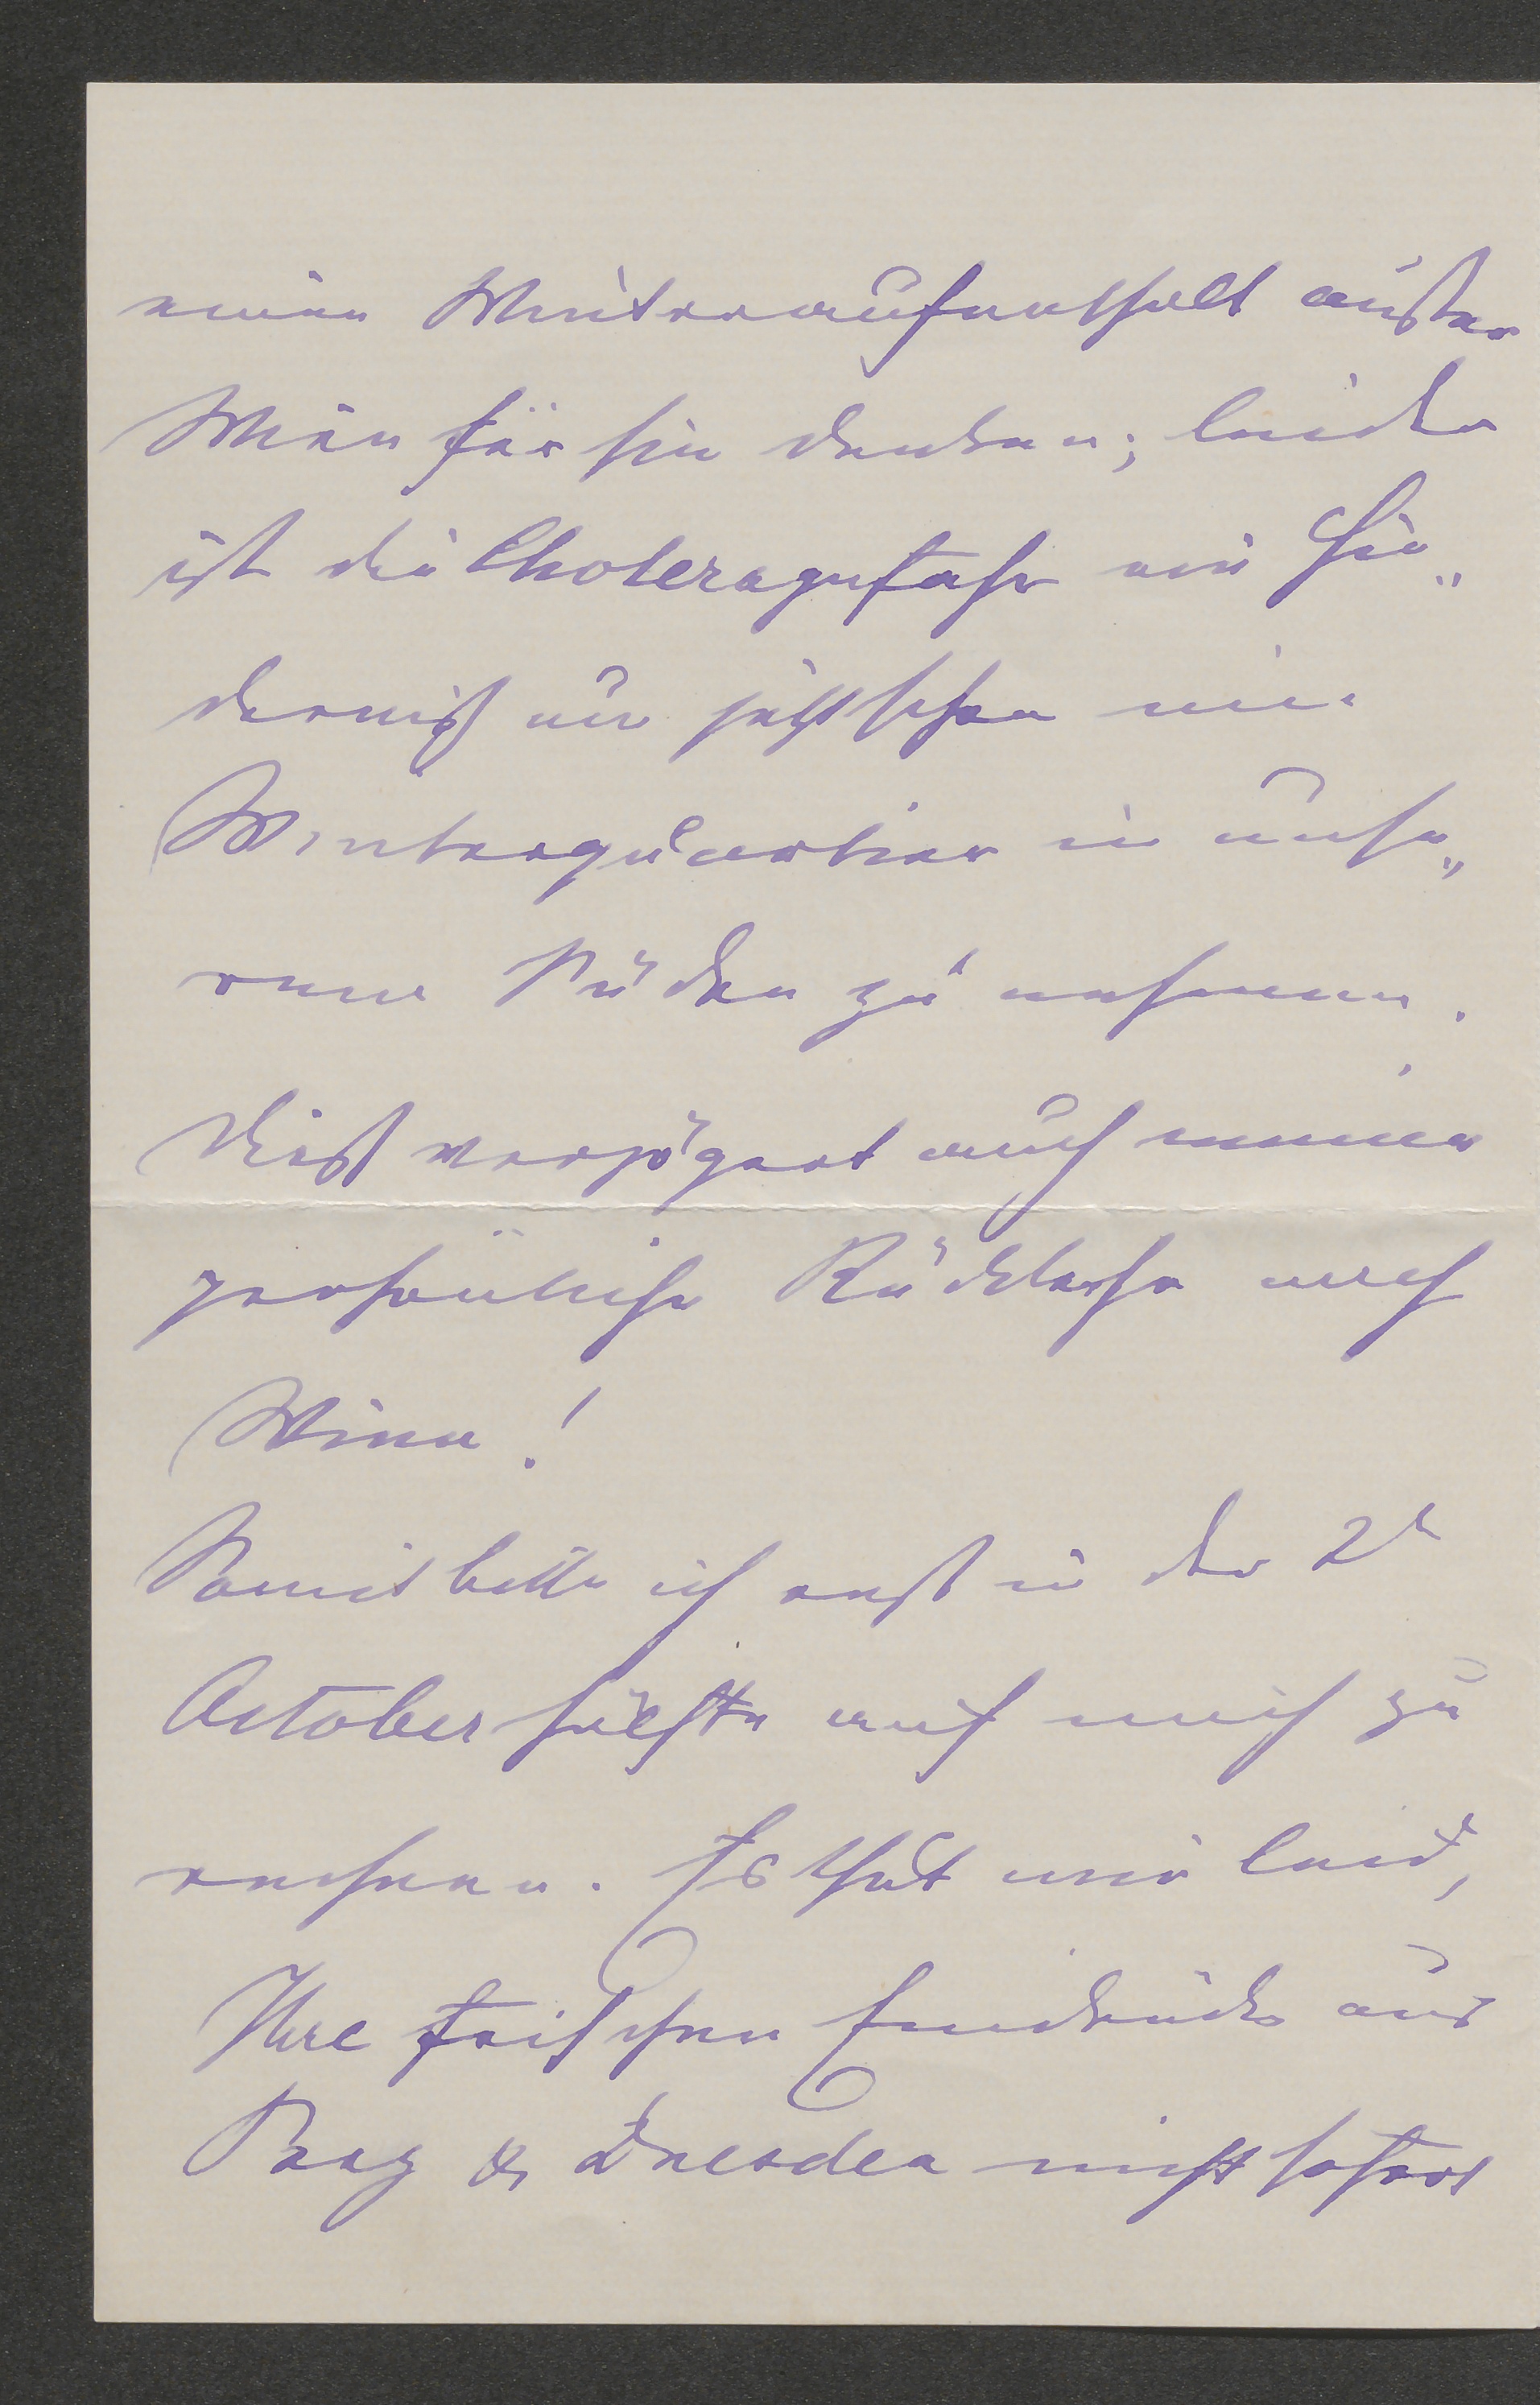 einen Winteraufenthalt außer
Wien für sie denken; leider
ist die Choleragefahr ein Hin„
derniß um jetzt schon ein
Winterquartier in unse„
rem Süden zu nehmen.
Dieß verzögert auch meine
persönliche Rückkehr nach
Wien!
Somit bitte ich erst in der 2t
October hälfte auf mich zu
rechnen. Es thut mir leid,
Ihre frischen Eindrücke aus
Prag & Dresden nicht sofort